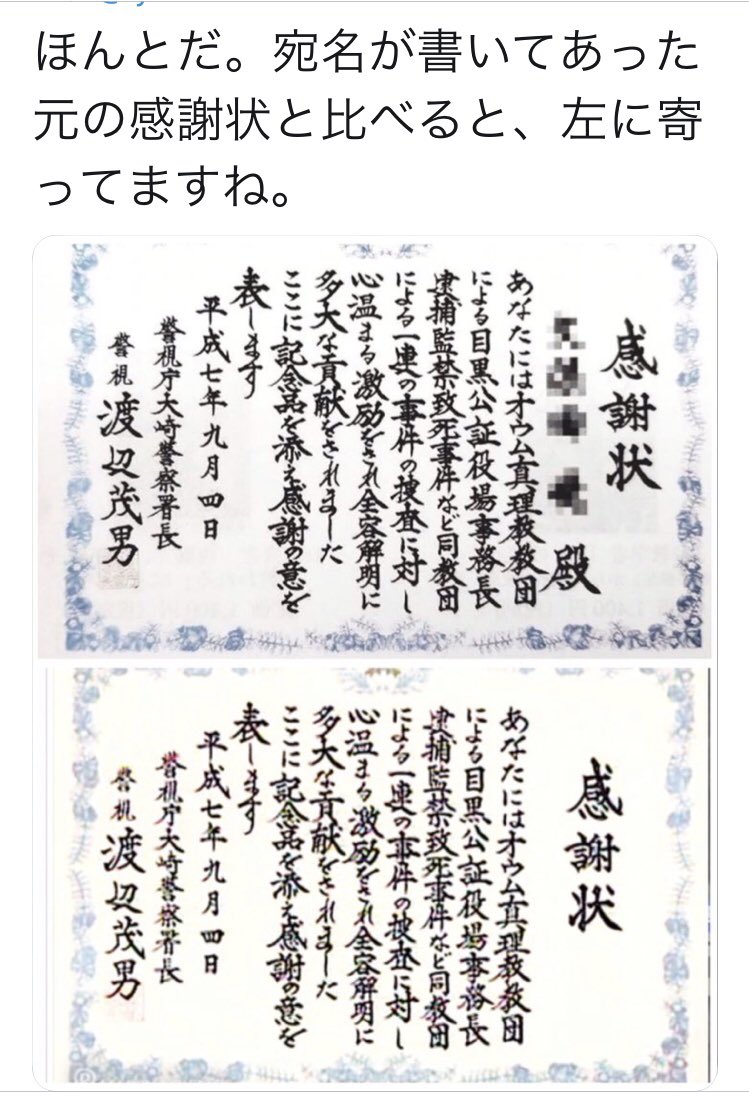 ほんとだ。宛名が書いてあった
元の感謝状と比べると、左に寄
ってますね。
感謝状
殿
あなたにはオウム真理教教団
による目黒公証役場事務長
逮捕監禁致死事件など同教団
による一連の事件の捜査に対し
心温まる激励をされ全容解明に
多大な貢献をされました
ここに記念品を添え感謝の意を
表します
平成七年九月四日
警視庁大崎警察署長
警視 渡辺茂男
感謝状
あなたにはオウム真理教教団
による目黒公証役場事務長
逮捕監禁致死事件など同教団
による一連の事件の捜査に対し
心温まる激励をされ全容解明に
多大な貢献をされました
ここに記念品を添え感謝の意を
表します
平成七年九月四日
警視庁大崎警察署長
警視 渡辺茂男